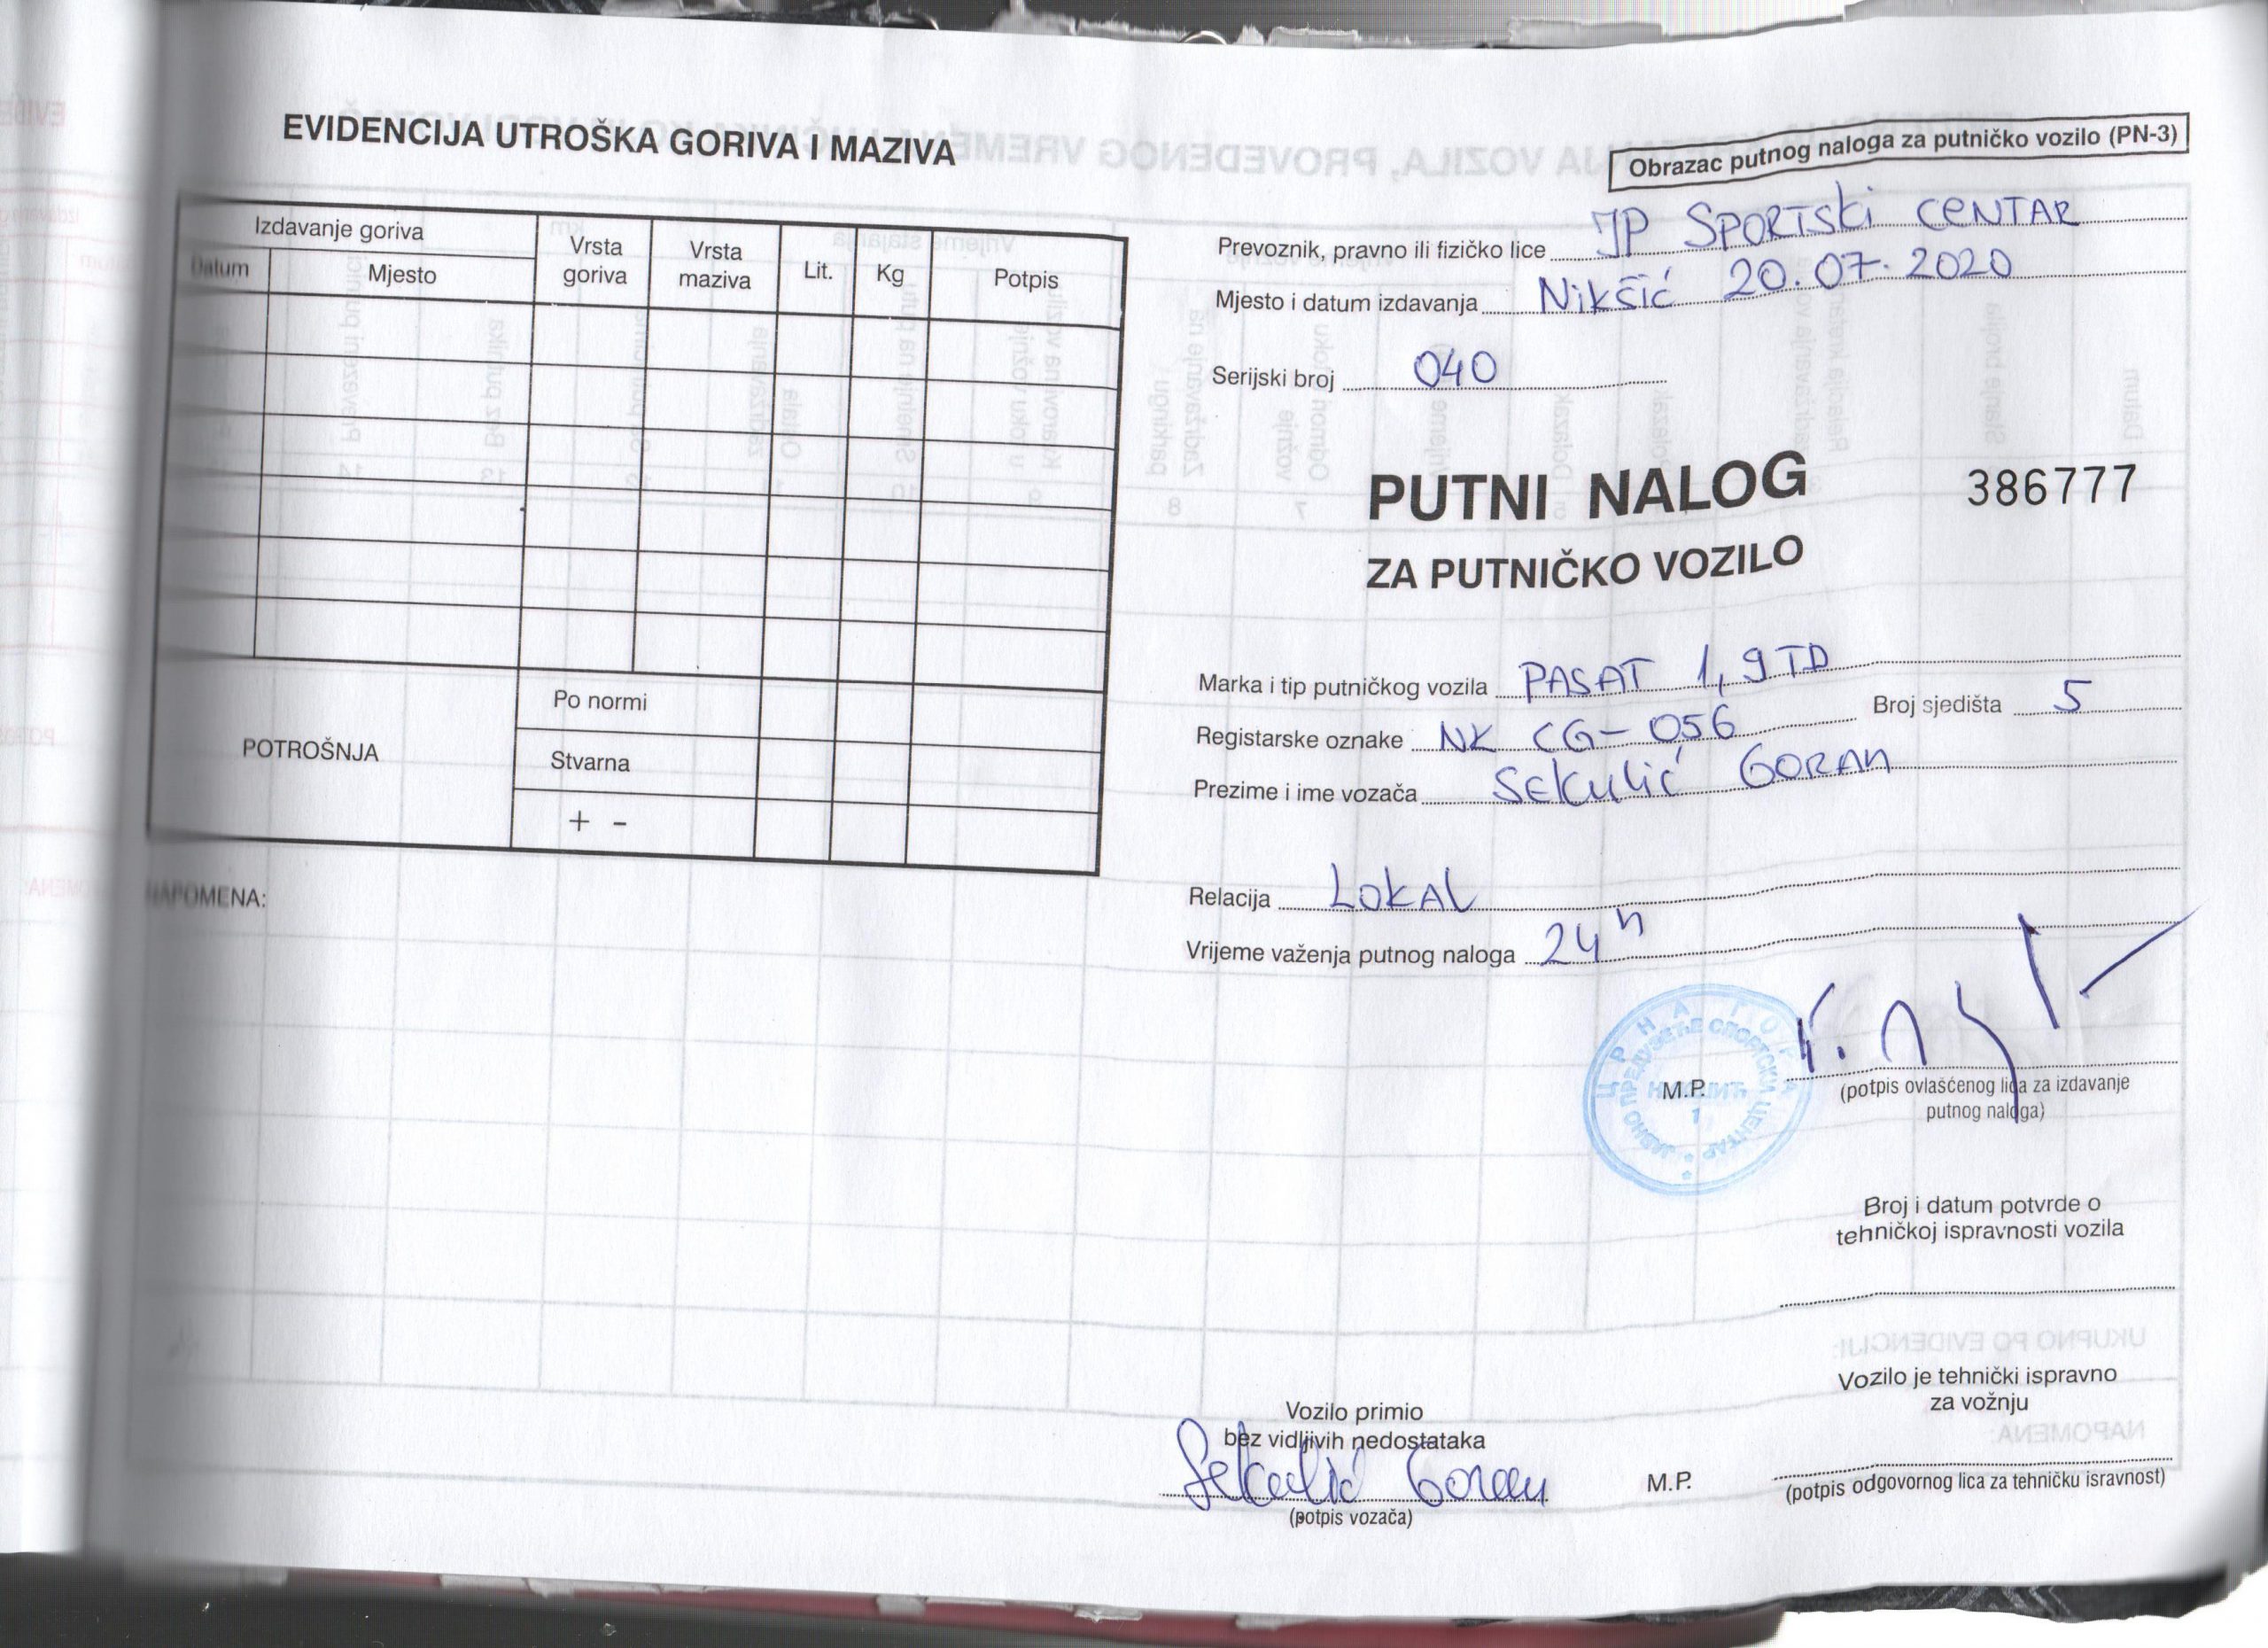 EVIDENCIJA UTROŠKA GORIVA I MAZIVA
Izdavanje goriva
Datum
Mjesto
Vrsta goriva
Vrsta maziva
Lit.
Kg
Potpis
POTROŠNJA
Po normi
Stvarna
+ -
NAPOMENA:
Obrazac putnog naloga za putničko vozilo (PN-3)
Prevoznik, pravno ili fizičko lice JP SPORTSKI CENTAR
Mjesto i datum izdavanja Nikšić 20.07.2020
Serijski broj 040
PUTNI NALOG 386777
ZA PUTNIČKO VOZILO
Marka i tip putničkog vozila PASAT 1,9 TD
Registarske oznake NK CG-056 Broj sjedišta 5
Prezime i ime vozača Sekulić Goran
Relacija LOKAL
Vrijeme važenja putnog naloga 24 h
ЦРНА ГОРА
ЈАВНО ПРЕДУЗЕЋЕ СПОРТСКИ ЦЕНТАР
НИКШИЋ
1
M.P.
(potpis ovlašćenog lica za izdavanje
putnog naloga)
Broj i datum potvrde o
tehničkoj ispravnosti vozila
Vozilo je tehnički ispravno
za vožnju
Vozilo primio
bez vidljivih nedostataka
Sekulić Goran
(potpis vozača)
M.P.
(potpis odgovornog lica za tehničku isravnost)